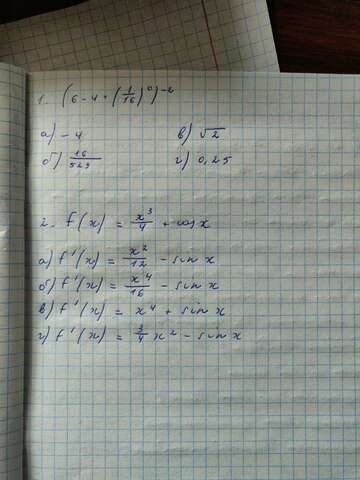 1. (6 - 4 · (1/16)^0)^-2
а) - 4 в) √2
б) 16/529 г) 0,25
2. f(x) = x^3/4 + cos x
а) f'(x) = x^2/12 - sin x
б) f'(x) = x^4/16 - sin x
в) f'(x) = x^4 + sin x
г) f'(x) = 3/4 x^2 - sin x